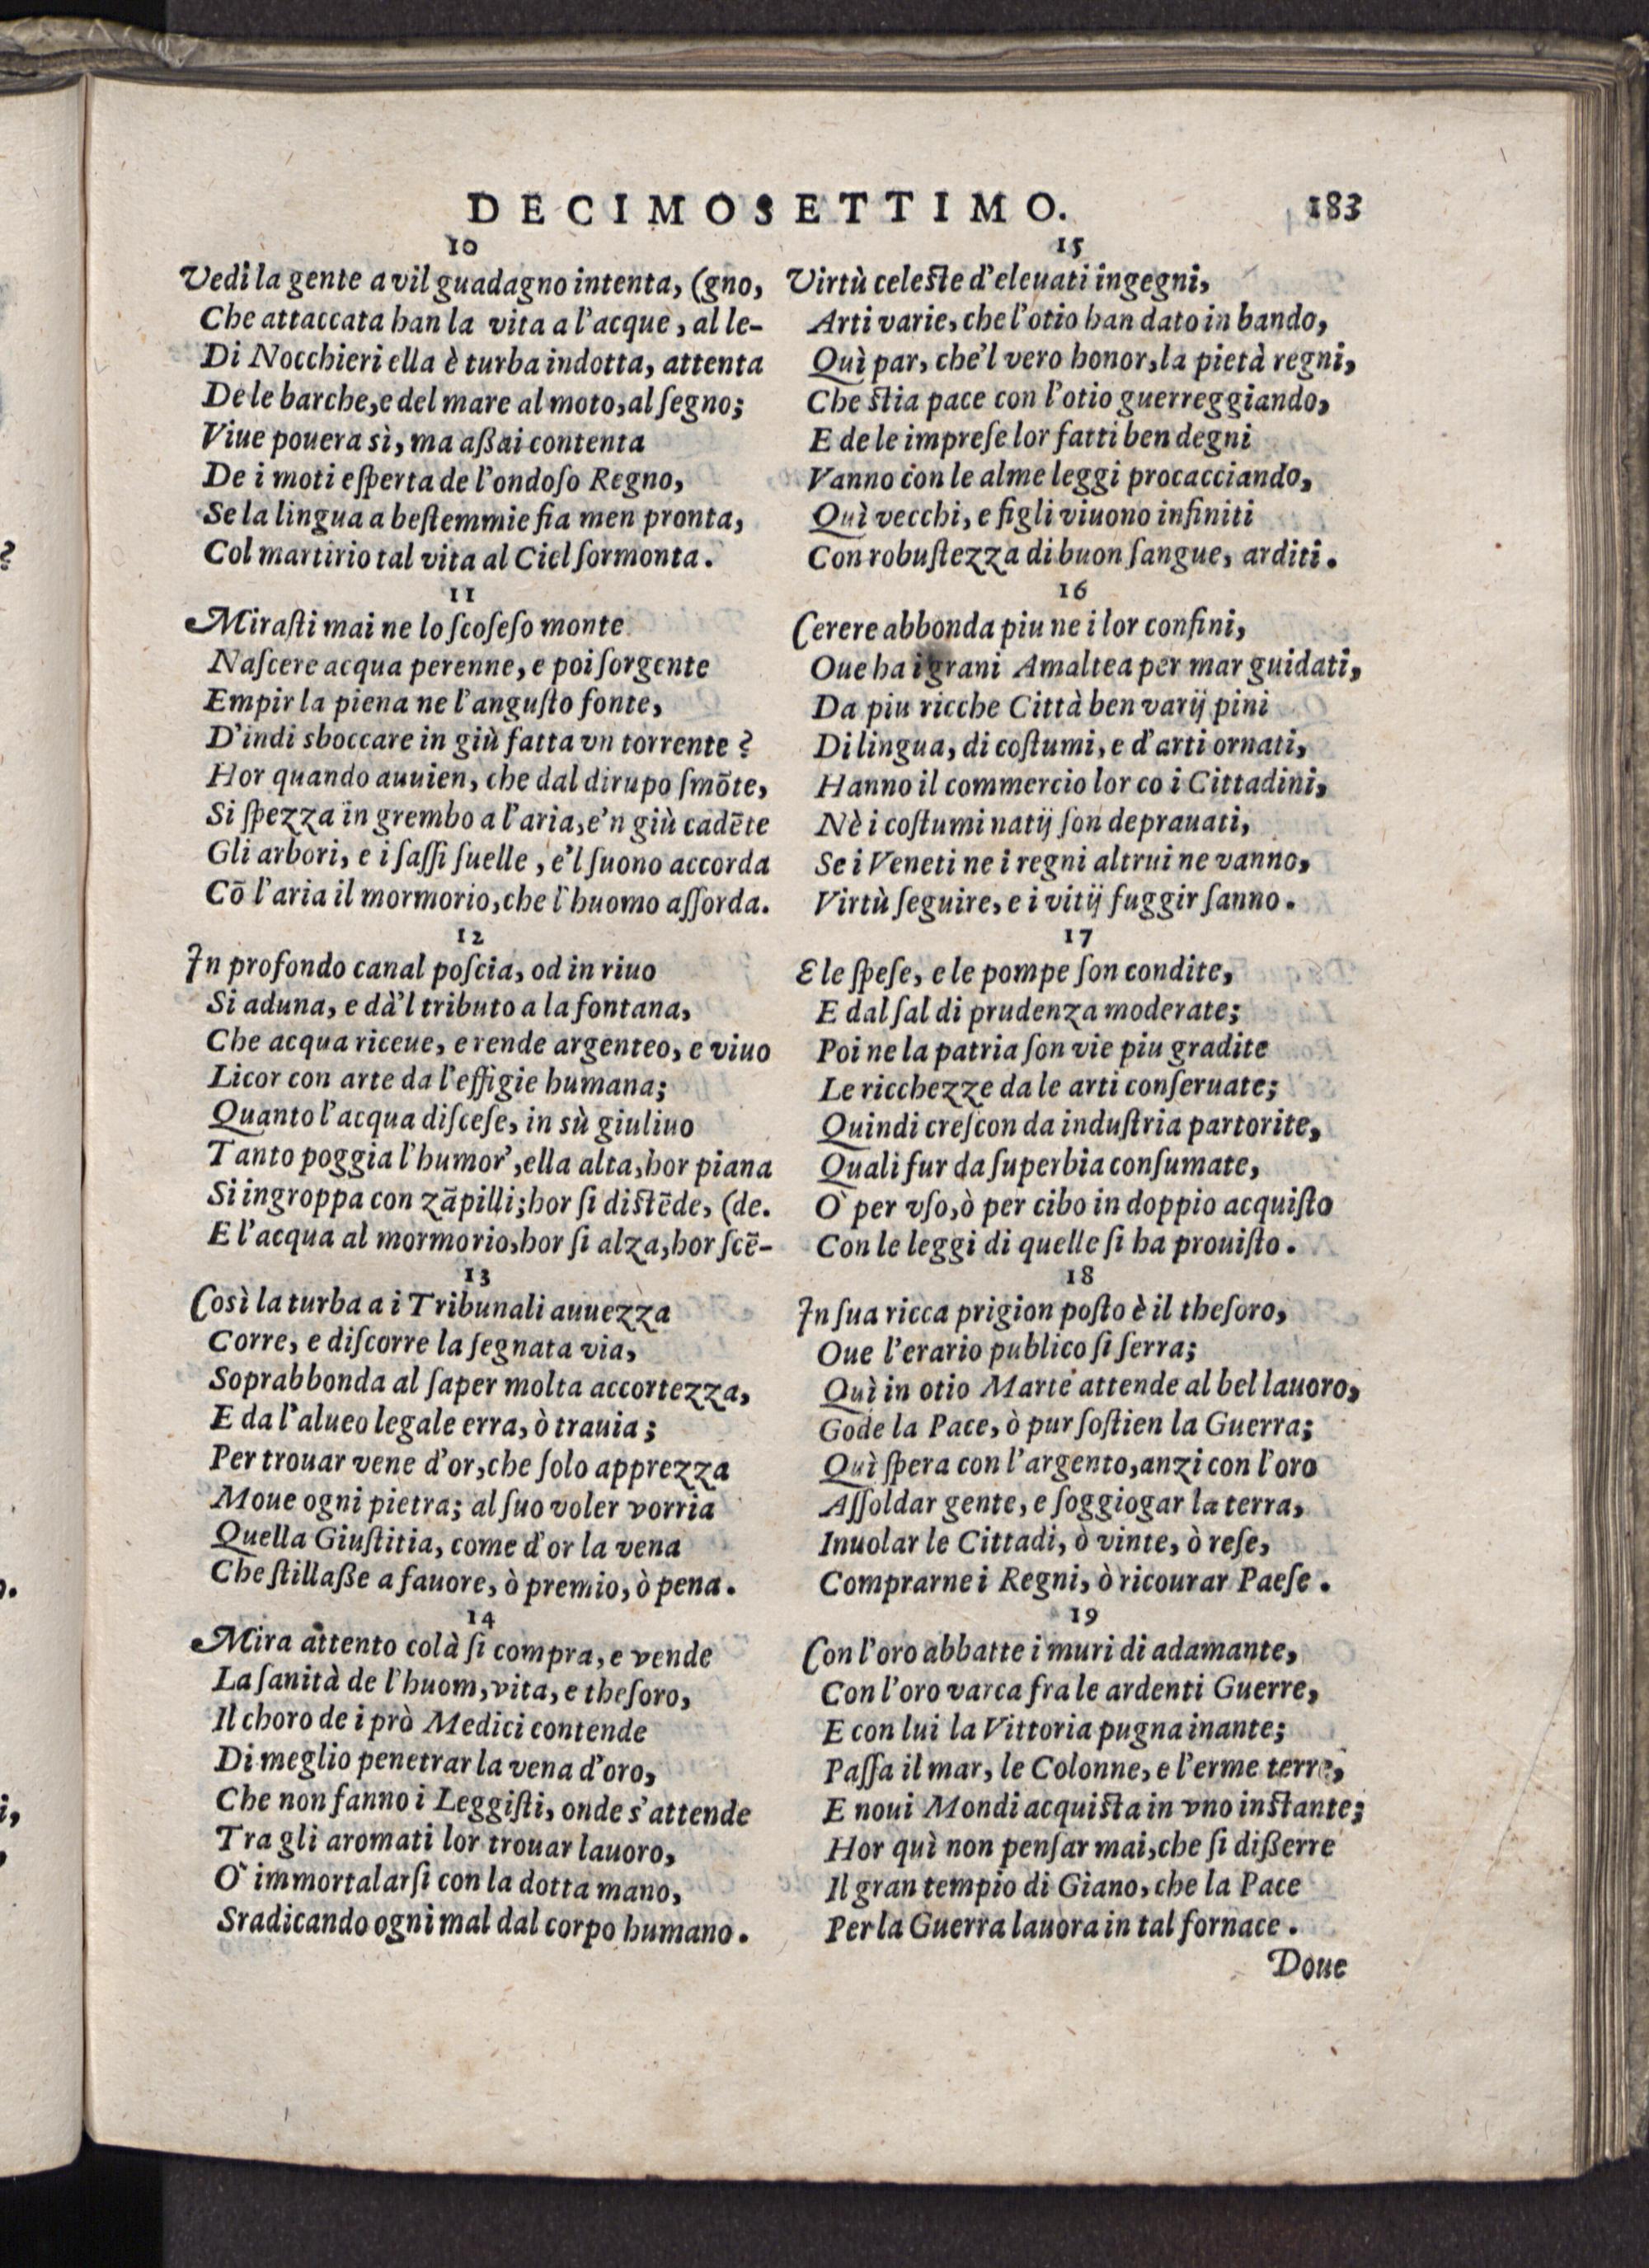 DECIMOSETTIMO. 183
10
Vedi la gente a vil guadagno intenta, (gno,
Che attaccata han la vita a l'acque, al le-
Di Nocchieri ella è turba indotta, attenta
De le barche, e del mare al moto, al ſegno;
Viue pouera sì, ma aßai contenta
De i moti eſperta de l'ondoſo Regno,
Se la lingua a beſtemmie ſia men pronta,
Col martirio tal vita al Ciel ſormonta.
11
Miraſti mai ne lo ſcoſeſo monte
Naſcere acqua perenne, e poi ſorgente
Empir la piena ne l'anguſto fonte,
D'indi sboccare in giù fatta vn torrente?
Hor quando auuien, che dal dirupo ſmõte,
Si ſpezza in grembo a l'aria, e'n giù cadẽte
Gli arbori, e i ſaſſi ſuelle, e'l ſuono accorda
Cõ l'aria il mormorio, che l'huomo aſſorda.
12
In profondo canal poſcia, od in riuo
Si aduna, e dà'l tributo a la fontana,
Che acqua riceue, e rende argenteo, e viuo
Licor con arte da l'effigie humana;
Quanto l'acqua diſceſe, in sù giuliuo
Tanto poggia l'humor, ella alta, hor piana
Si ingroppa con zãpilli; hor ſi diſtẽde, (de.
E l'acqua al mormorio, hor ſi alza, hor ſcẽ-
13
Così la turba a i Tribunali auuezza
Corre, e diſcorre la ſegnata via,
Soprabbonda al ſaper molta accortezza,
E da l'alueo legale erra, ò trauia;
Per trouar vene d'or, che ſolo apprezza
Moue ogni pietra; al ſuo voler vorria
Quella Giuſtitia, come d'or la vena
Che ſtillaße a fauore, ò premio, ò pena.
14
Mira attento colà ſi compra, e vende
La ſanità de l'huom, vita, e theſoro,
Il choro de i prò Medici contende
Di meglio penetrar la vena d'oro,
Che non fanno i Leggiſti, onde s'attende
Tra gli aromati lor trouar lauoro,
O' immortalarſi con la dotta mano,
Sradicando ogni mal dal corpo humano.
15
Virtù celeſte d'eleuati ingegni,
Arti varie, che l'otio han dato in bando,
Quì par, che'l vero honor, la pietà regni,
Che ſtia pace con l'otio guerreggiando,
E de le impreſe lor fatti ben degni
Vanno con le alme leggi procacciando,
Quì vecchi, e figli viuono infiniti
Con robuſtezza di buon ſangue, arditi.
16
Cerere abbonda piu ne i lor confini,
Oue ha i grani Amaltea per mar guidati,
Da piu ricche Città ben varij pini
Di lingua, di coſtumi, e d'arti ornati,
Hanno il commercio lor co i Cittadini,
Nè i coſtumi natij ſon deprauati,
Se i Veneti ne i regni altrui ne vanno,
Virtù ſeguire, e i vitij fuggir ſanno.
17
E le ſpeſe, e le pompe ſon condite,
E dal ſal di prudenza moderate;
Poi ne la patria ſon vie piu gradite
Le ricchezze da le arti conſeruate;
Quindi creſcon da induſtria partorite,
Quali fur da ſuperbia conſumate,
O' per vſo, ò per cibo in doppio acquiſto
Con le leggi di quelle ſi ha prouiſto.
18
In ſua ricca prigion poſto è il theſoro,
Oue l'erario publico ſi ſerra;
Quì in otio Marte attende al bel lauoro,
Gode la Pace, ò pur ſoſtien la Guerra;
Quì ſpera con l'argento, anzi con l'oro
Aſſoldar gente, e ſoggiogar la terra,
Inuolar le Cittadi, ò vinte, ò reſe,
Comprarne i Regni, ò ricourar Paeſe.
19
Con l'oro abbatte i muri di adamante,
Con l'oro varca fra le ardenti Guerre,
E con lui la Vittoria pugna inante;
Paſſa il mar, le Colonne, e l'erme terre,
E noui Mondi acquiſta in vno inſtante;
Hor quì non penſar mai, che ſi dißerre
Il gran tempio di Giano, che la Pace
Per la Guerra lauora in tal fornace.
Doue